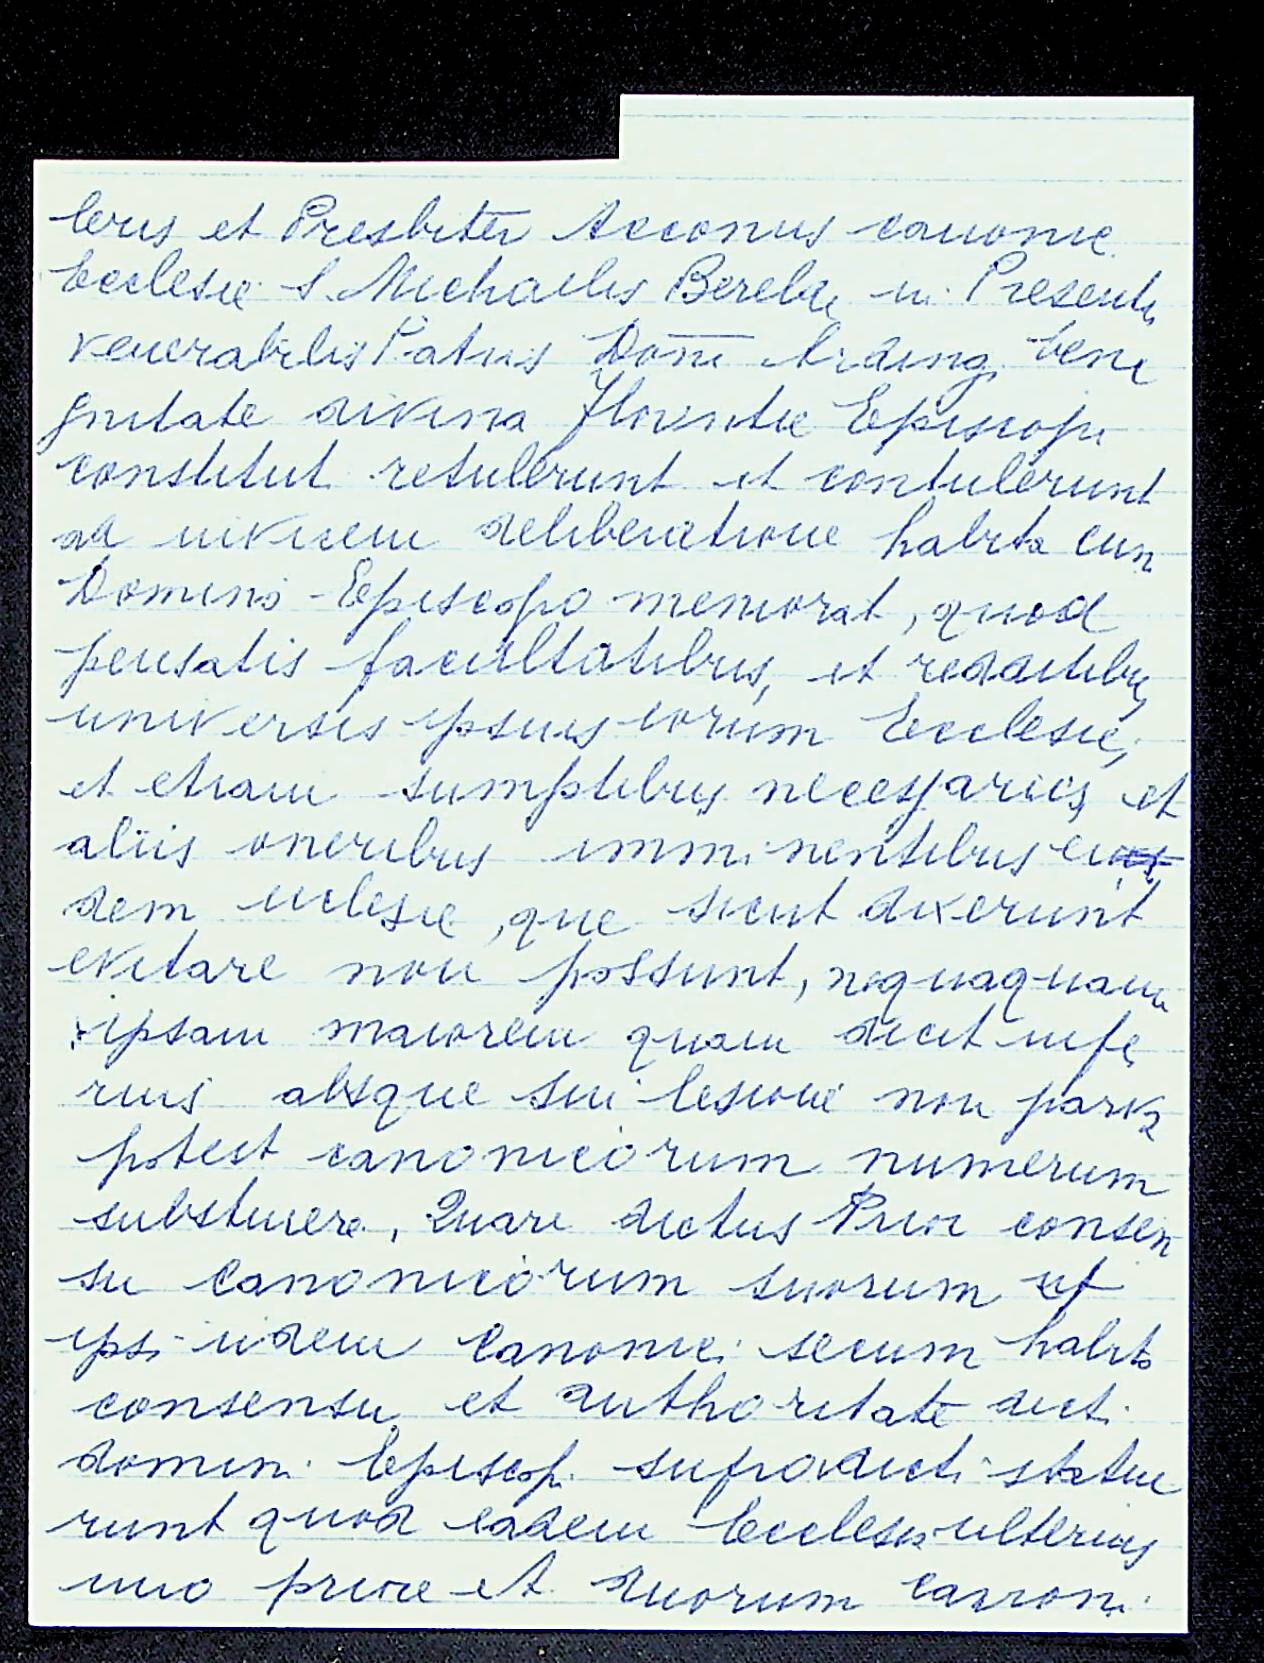 lerus et Presbiter Acconus canonic
Ecclesie S. Michaelis Berelde in Presentia
venerabilis Patris Dom̄ Arding. beni
gnitate divina Florentie Episcopi
constitut retulerunt et contulerunt
ad invicem deliberatione habita cum
Domino Episcopo memorat, quod
pensatis facultatibus, et redditibus
universis ipsius eorum Ecclesie,
et etiam sumptibus necessariis et
aliis oneribus imminentibus ei
dem eclesie, que sicut dixerunt
evitare non possunt, nequaquam
ipsam maiorem quam dicit infe
rius absque sui lesione non parva
potest canonicorum numerum
substinere, Quare dictus Prior consen
su canonicorum suorum et
ipsi iidem Canonici secum habito
consensu et authoritate dicti
domini Episcopi supradicti statue
runt quod eadem Ecclesia ulterius
uno priore et duorum canoni